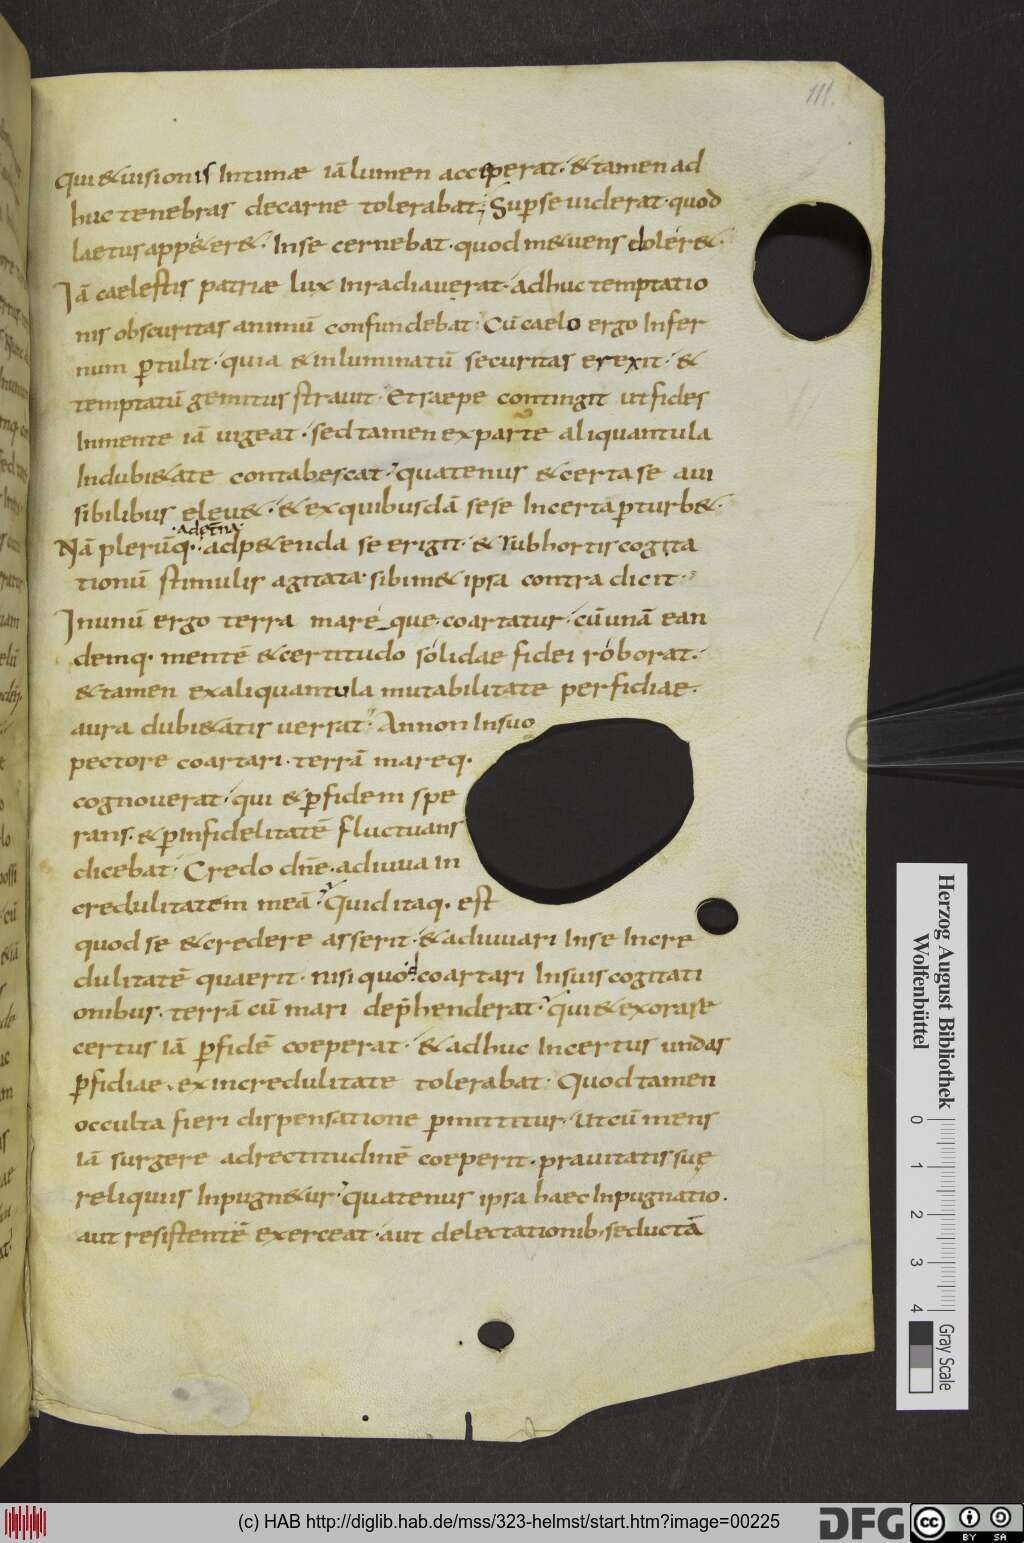 111.
qui & uisionis Intimae iā lumen acceperat· & tamen ad
huc tenebras decarne tolerabat; Sup se uiderat· quod
laetus app&er&· In se cernebat· quod m&uens doler&·
Iā caelestis patriae lux inradiauerat· adhuc temptatio
nis obscuritas animū confundebat· Cū caelo ergo Infer
num ptulit· quia & inluminatū securitas erexit· &
temptatū gemitus strauit· Et saepe contingit ut fides
Inmente iā uigeat· sed tamen ex parte aliquantula
Indubi&ate contabescat· quatenus & certa se aui
sibilibus eleu&· & ex quibusdā sese Incerta pturb&·
·adęt̄na·
Nā plerūq· ad p&enda se erigit· & subhortis cogita
tionū stimulis agitata· sibim& ipsa contra dicit·
Inunū ergo terra mare que· coartatur· cū unā ean
demq· mentē & certitudo solidae fidei roborat·
& tamen exaliquantula mutabilitate perfidiae·
aura dubi&atis uerrat· Annon Insuo
pectore coartari· terrā mareq·
cognouerat· qui & p fidem spe
rans· & p infidelitatē fluctuans
dicebat· Credo dn̄e· adiuua in
credulitatem meā· Quid itaq· est
quod se & credere asserit· & adiuuari Inse Incre
dulitatē quaerit· nisi quod coartari Insuis cogitati
onibus· terrā cū mari dep̄henderat· qui & exorare
certus iā p fidē coeperat· & adhuc Incertus undas
pfidiae· ex incredulitate tolerabat· Quod tamen
occulta fieri dispensatione pmittitur· ut cū mens
iā surgere ad rectitudinē coeperit· prauitatis suę
reliquiis Inpugn&ur· quatenus ipsa haec Inpugnatio·
aut resistentē exerceat· aut delectationib; seductā
Herzog August Bibliothek
Wolfenbüttel
0 1 2 3 4
Gray Scale
(c) HAB http://diglib.hab.de/mss/323-helmst/start.htm?image=00225
DFG
cc BY SA